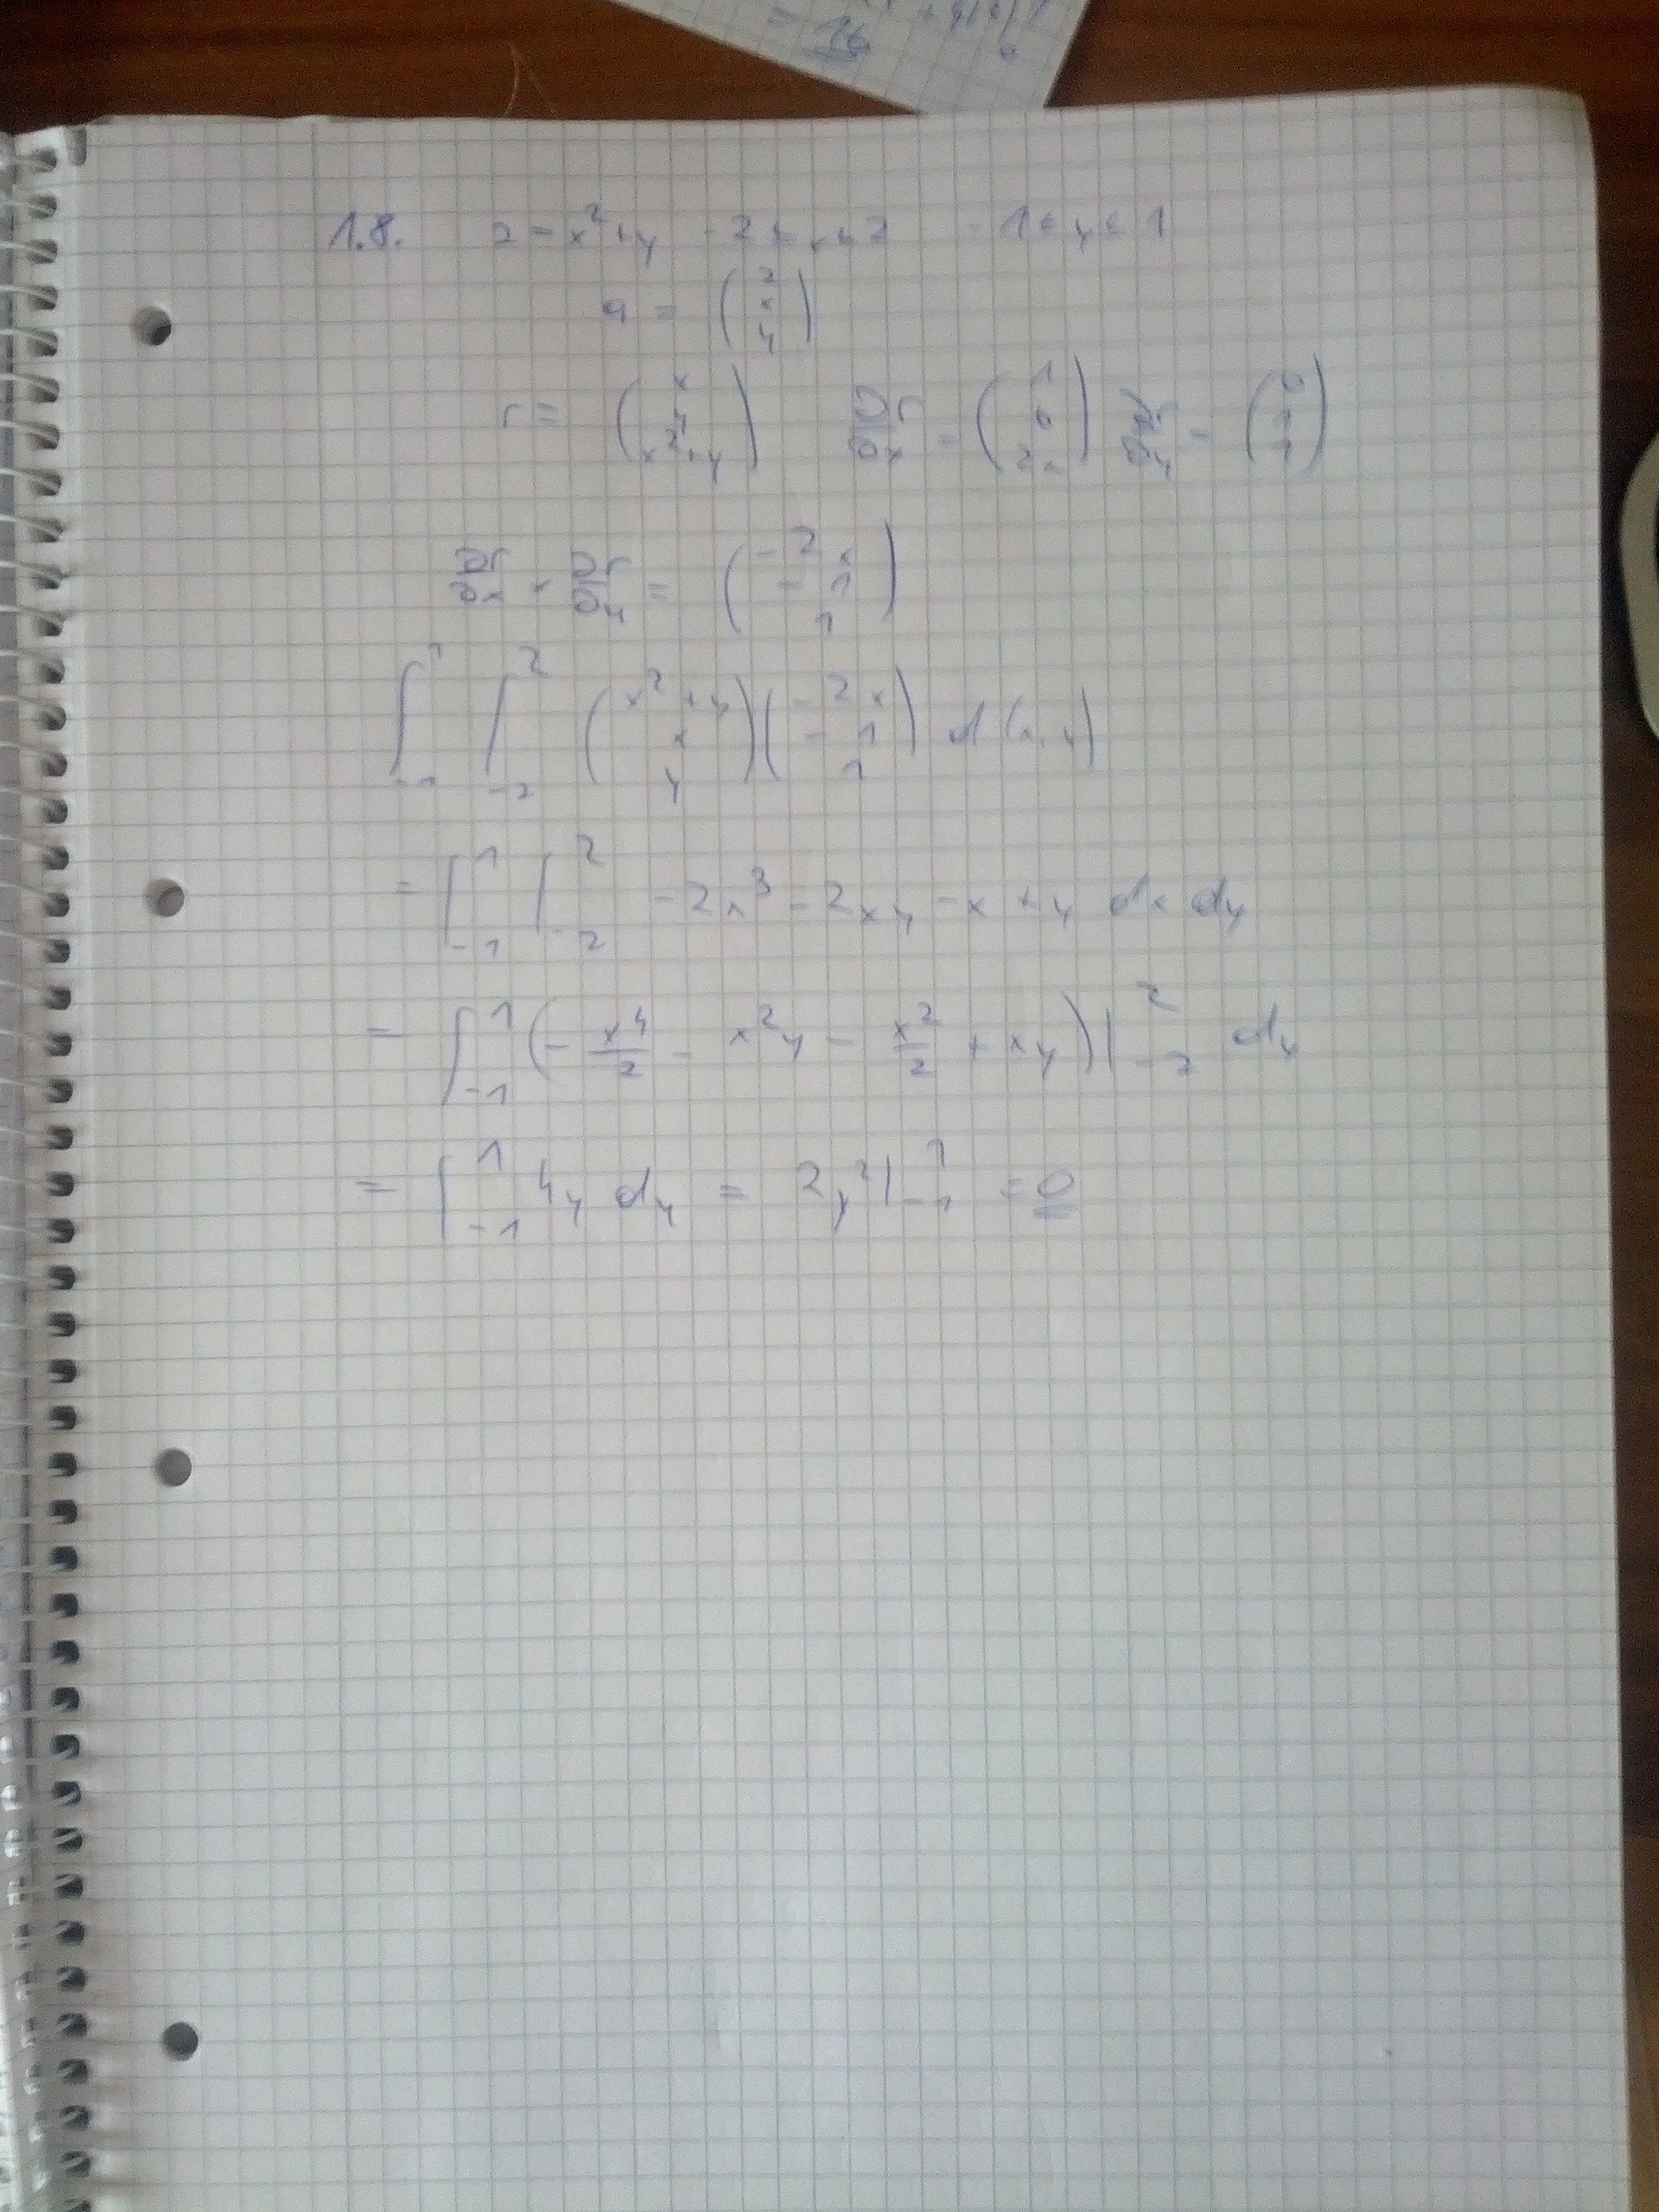 = 16
1.8. z = x² + y -2 ≤ x ≤ 2 -1 ≤ y ≤ 1
a = (z x y)
r = (x y x²+y) ∂r/∂x = (1 0 2x) ∂r/∂y = (0 1 1)
∂r/∂x × ∂r/∂y = (-2x -1 1)
∫₋₁¹ ∫₋₂² (x²+y x y)(-2x -1 1) d(x,y)
= ∫₋₁¹ ∫₋₂² -2x³ - 2xy - x + y dx dy
= ∫₋₁¹ (- x⁴/2 - x²y - x²/2 + xy)|₋₂² dy
= ∫₋₁¹ 4y dy = 2y²|₋₁¹ = 0